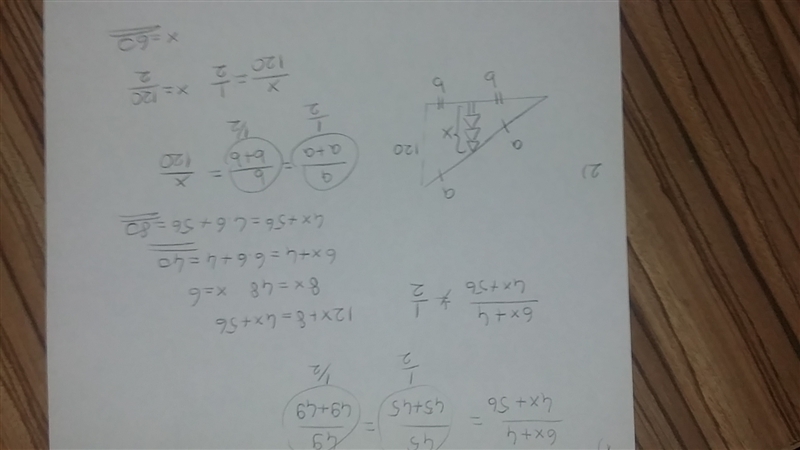 1)
6x+4/4x+56 = 45/45+45 = 49/49+49
1/2 1/2
6x+4/4x+56 = 1/2
12x+8=4x+56
8x=48 x=6
6x+4=6·6+4=40
4x+56=4·6+56=80
2)
a
a
120
x
b
b
a/a+a = b/b+b = x/120
1/2 1/2
x/120 = 1/2 x=120/2
x=60